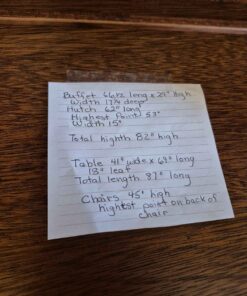 Buffet 66½ long x 29" high
Width 17¼ deep
Hutch 62" long
Highest Point 53"
Width 15"
Total highth 82" high
Table 41" wide x 69" long
18" leaf
Total length 87" long
Chairs 45" high
highest point on back of
chair